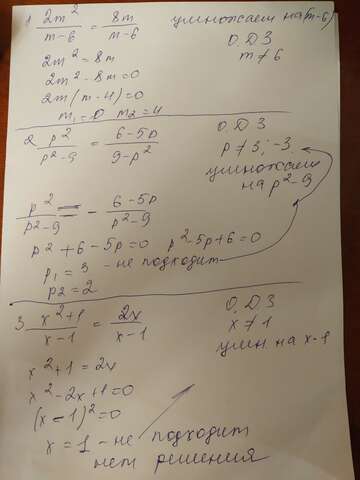 1 2m²/(m-6) = 8m/(m-6) умножаем на (m-6)
О.Д.З
2m² = 8m m ≠ 6
2m² - 8m = 0
2m(m-4) = 0
m₁ = 0 m₂ = 4
2 p²/(p²-9) = (6-5p)/(9-p²) О.Д.З
p ≠ 3; -3
умножаем
на p²-9
p²/(p²-9) = - (6-5p)/(p²-9)
p² + 6 - 5p = 0 p² - 5p + 6 = 0
p₁ = 3 - не подходит
p2 = 2
3. (x²+1)/(x-1) = 2x/(x-1) О.Д.З
x ≠ 1
умн. на x-1
x² + 1 = 2x
x² - 2x + 1 = 0
(x-1)² = 0
x = 1 - не подходит
нет решения